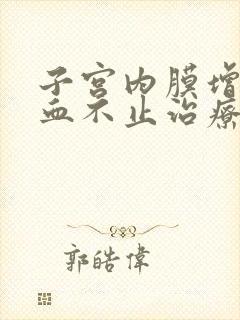 子宫内膜增
血不止治療
郭皓偉